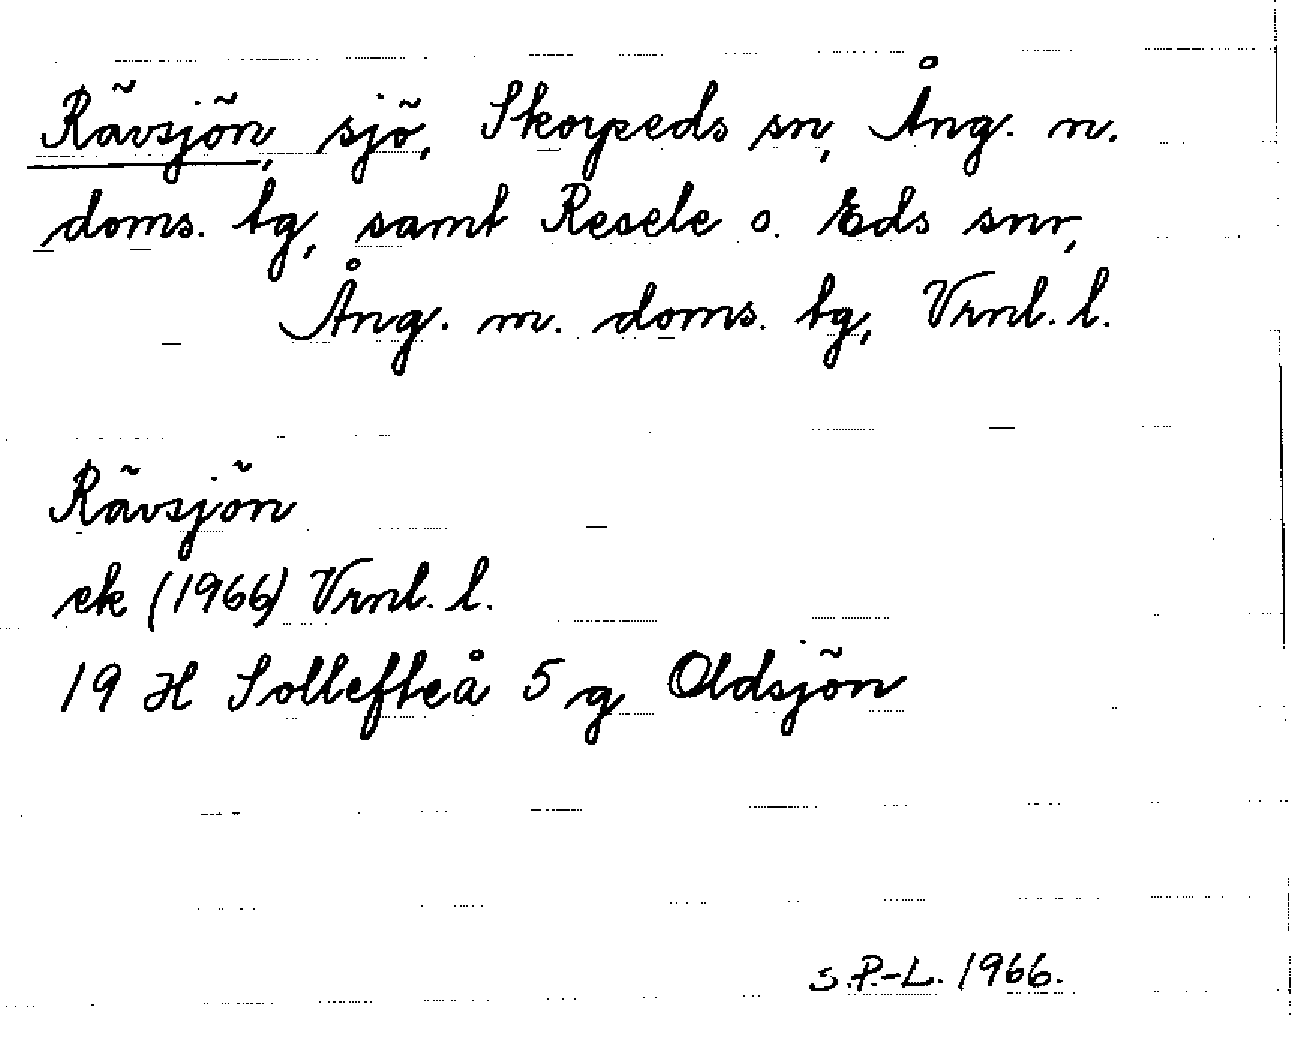 Rävsjön, sjö, Skorpeds sn, Ång. n.
doms. tg, samt Resele o. Eds snr,
Ång. m. doms. tg, Vrnl. l.
Rävsjön
ek (1966) Vrnl. l.
19 H Sollefteå 5 g Oldsjön
S.P.-L. 1966.